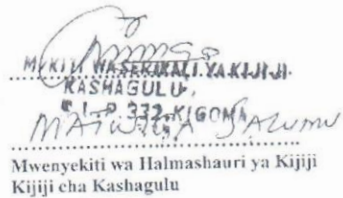 M/KITI WA SERIKALI YA KIJIJI
KASHAGULU,
332, KIGOMA
SALUMU
Mwenyekiti wa Halmashauri ya Kijiji
Kijiji cha Kashagulu